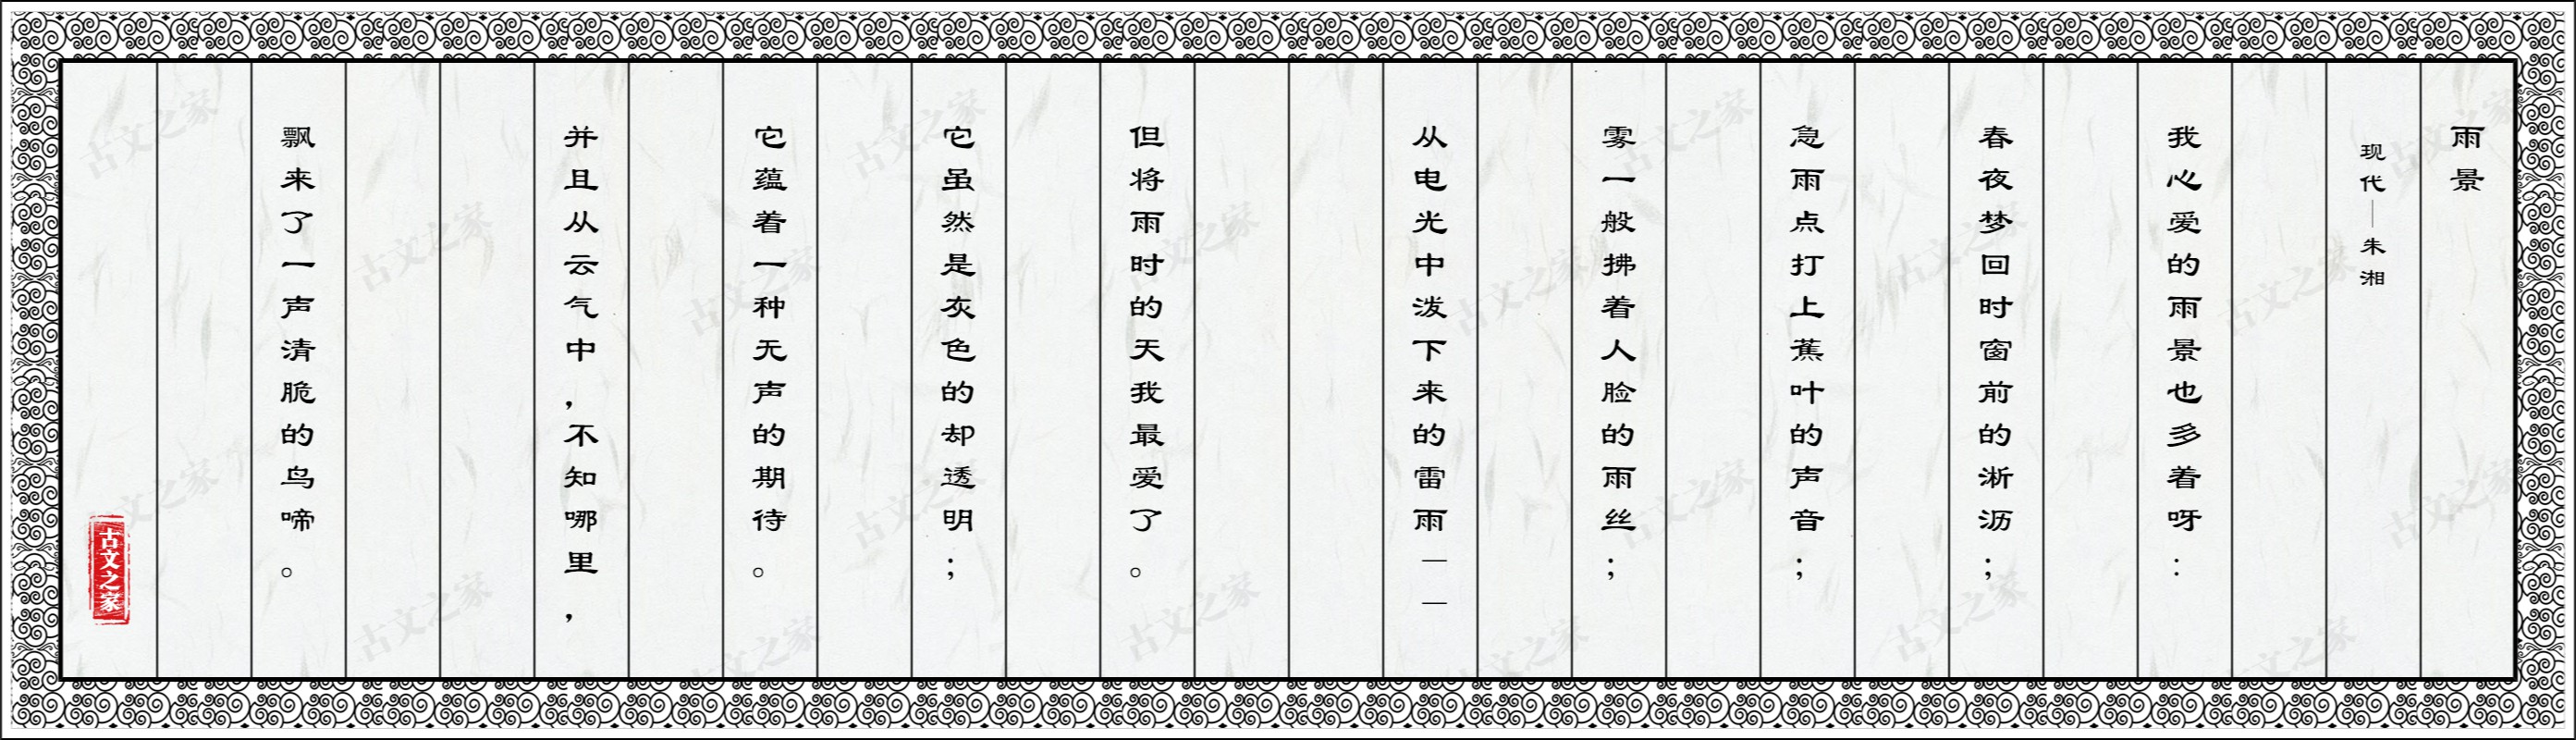 雨景
现代——朱湘
我心爱的雨景也多着呀：
春夜梦回时窗前的淅沥；
急雨点打上蕉叶的声音；
雾一般拂着人脸的雨丝；
从电光中泼下来的雷雨——
但将雨时的天我最爱了。
它虽然是灰色的却透明；
它蕴着一种无声的期待。
并且从云气中，不知哪里，
飘来了一声清脆的鸟啼。
古文之家